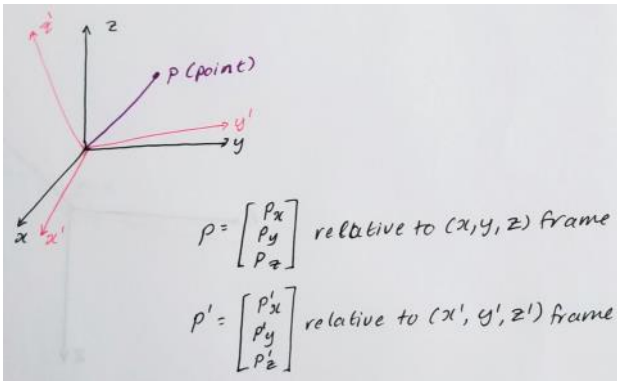 z'
z
P (point)
y'
y
x
x'
P = [ Px
Py
Pz ] relative to (x,y,z) frame
P' = [ P'x
P'y
P'z ] relative to (x', y', z') frame